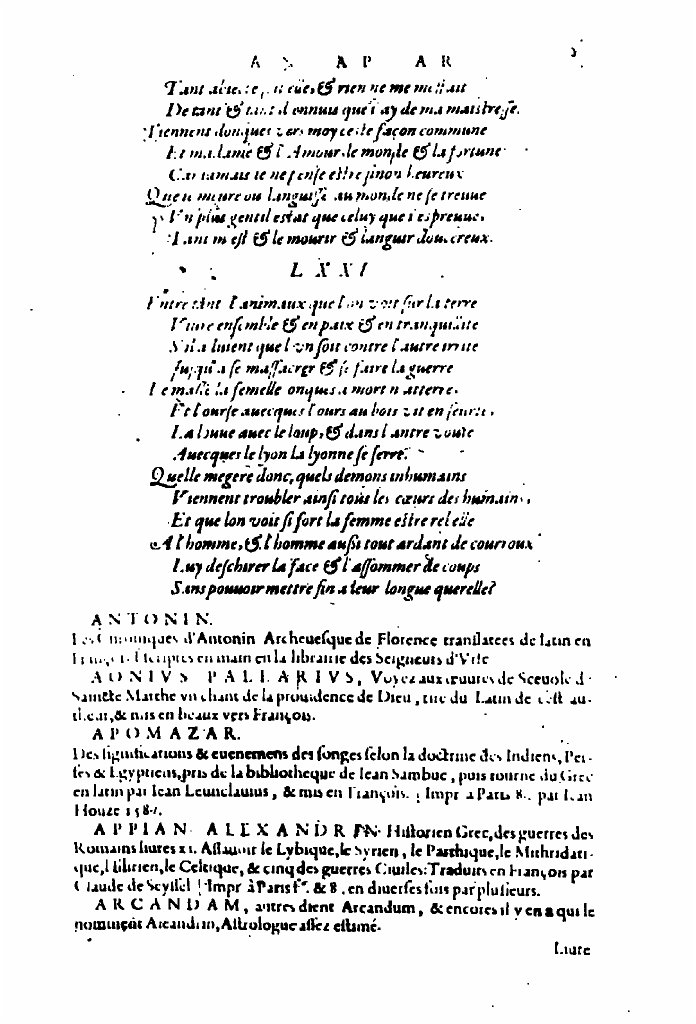 A AP AR
Tant &, & rien ne me
De tant & tant d'ennuis que i'ay de ma maistresse.
Viennent donques vers moy ceste façon commune
Et ma dame & l'Amour le monde & la fortune
Car iamais ie ne pense estre sinon heureux
Que ie meure ou languisse au monde ne se treuue
Vn plus gentil estat que celuy que i'espreuue,
Tant m'est & le mourir & languir doucereux.
LXXI
Entre tant d'animaux que l'on voit sur la terre
Viure ensemble & en paix & en tranquilité
S'il aduient que l'vn soit contre l'autre irrité
Iusqu'a se massacrer & se faire la guerre
Le masle la femelle onques a mort n'atterre,
Et l'ourse auecques l'ours au bois vit en
La louue auec le loup, & dans l'antre voute
Auecques le lyon la lyonne se serre.
Quelle megere donc, quels demons inhumains
Viennent troubler ainsi tous les cœurs des humains,
Et que lon voit si fort la femme estre
A l'homme, & l'homme aussi tout ardant de courroux
Luy deschirer la face & l'assommer de coups
Sans pouuoir mettre fin a leur longue querelle?
ANTONIN.
Les Chroniques d'Antonin Archeuesque de Florence translatees de latin en
François. escriptes en main en la librairie des Seigneurs d'Vrfe
AONIVS PALEARIVS, Voyez aux œuures de Sceuole de
Saincte Marthe vn chant de la prouidence de Dieu, tiré du Latin de cest au-
theur, & mis en beaux vers François.
APOMAZAR.
Des significations & euenemens des songes selon la doctrine des Indiens, Per-
ses & Egyptiens, pris de la bibliotheque de Iean Sambuc, puis tourné du Grec
en latin par Iean Leunclauius, & mis en François. Impr a Paris 8. par Iean
Houze 158.
APPIAN ALEXANDRIN Historien Grec, des guerres des
Romains liures xi. Assauoir le Lybique, le Syrien, le Parthique, le Mithridati-
que, l'Illirien, le Celtique, & cinq des guerres Ciuiles: Traduits en François par
Claude de Seyssel Impr à Paris f°. & 8. en diuerses fois par plusieurs.
ARCANDAM, autres dient Arcandum, & encores il y en a qui le
nomment Arcandam, Astrologue assez estimé.
Liure